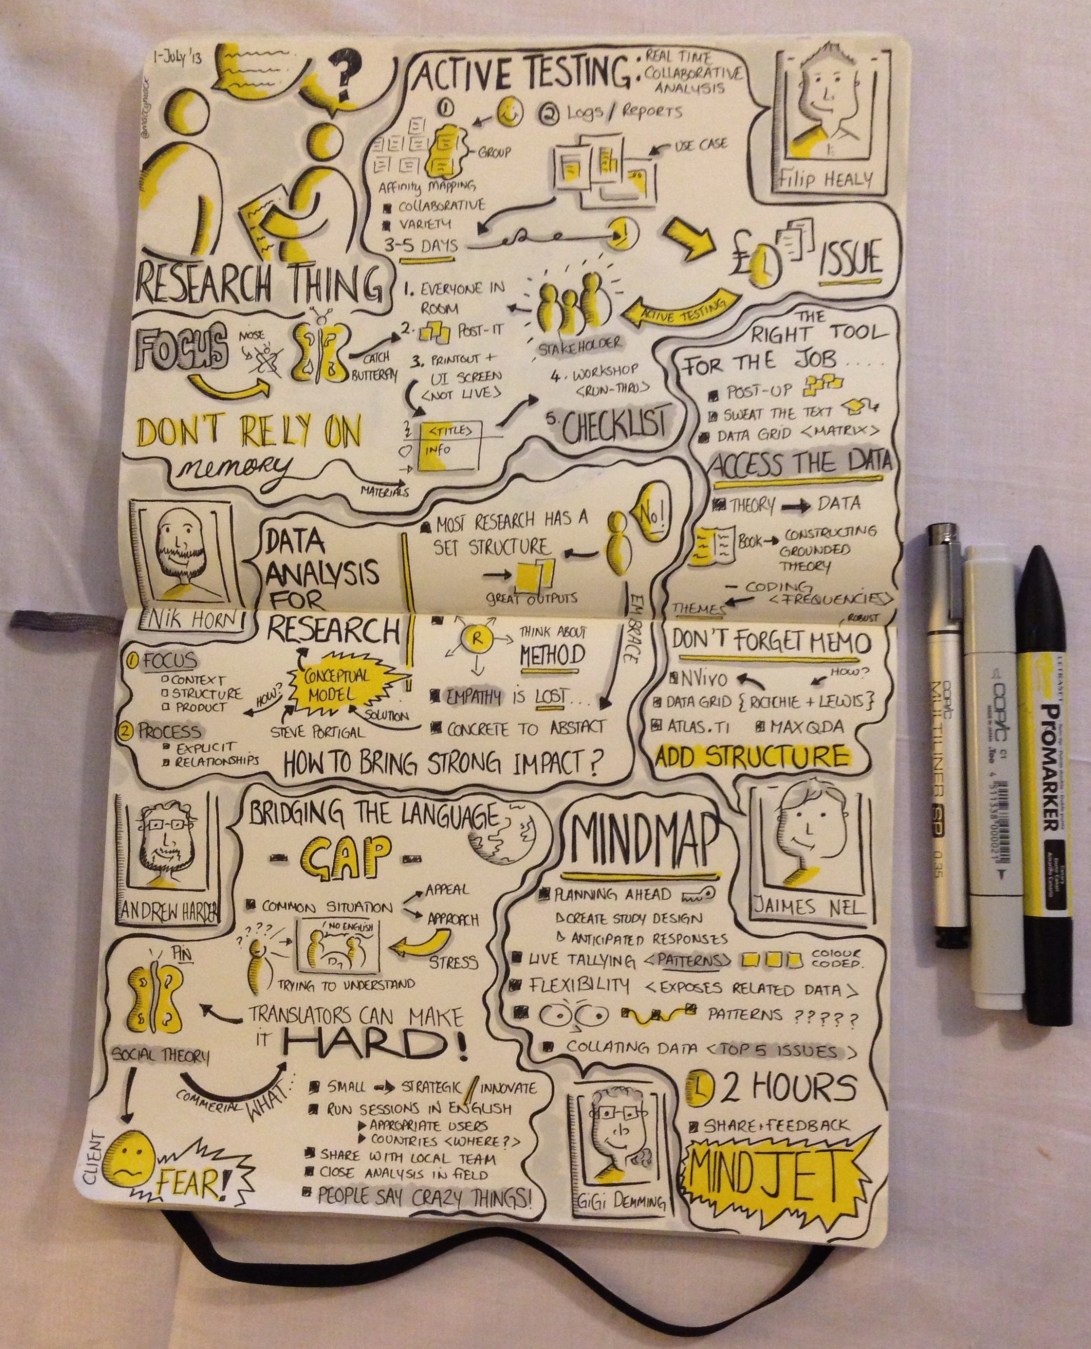 1-July '13
?
RESEARCH THING
ACTIVE TESTING:
REAL TIME
COLLABORATIVE
ANALYSIS
①
② Logs / REPORTS
GROUP
USE CASE
AFFINITY MAPPING
COLLABORATIVE
VARIETY
3-5 DAYS
Filip HEALY
£
ISSUE
ACTIVE TESTING
STAKEHOLDER
1. EVERYONE IN
ROOM
2. POST-IT
3. PRINTOUT +
UI SCREEN
<NOT LIVE>
4. WORKSHOP
<RUN-THRU>
5. CHECKLIST
<TITLE>
INFO
MATERIALS
FOCUS
NOISE
CATCH
BUTTERFLY
DON'T RELY ON
memory
THE
RIGHT TOOL
FOR THE JOB....
POST-UP
SWEAT THE TEXT
DATA GRID <MATRIX>
ACCESS THE DATA
THEORY → DATA
BOOK → CONSTRUCTING
GROUNDED
THEORY
- CODING
<FREQUENCIES>
THEMES
ROBUST
DON'T FORGET MEMO
HOW?
NVivo
DATA GRID {RITCHIE + LEWIS}
ATLAS.TI
MAXQDA
ADD STRUCTURE
NIK HORN
DATA
ANALYSIS
FOR
RESEARCH
MOST RESEARCH HAS A
SET STRUCTURE
NO!
GREAT OUTPUTS
EMBRACE
R
THINK ABOUT
METHOD
EMPATHY IS LOST...
CONCRETE TO ABSTACT
① FOCUS
CONTEXT
STRUCTURE
PRODUCT
② PROCESS
EXPLICIT
RELATIONSHIPS
HOW?
CONCEPTUAL
MODEL
STEVE PORTIGAL
SOLUTION
HOW TO BRING STRONG IMPACT?
ANDREW HARDER
BRIDGING THE LANGUAGE
- GAP -
COMMON SITUATION
APPEAL
APPROACH
STRESS
????
NO ENGLISH
TRYING TO UNDERSTAND
TRANSLATORS CAN MAKE
IT HARD!
PIN
SOCIAL THEORY
COMMERIAL WHAT...
CLIENT
FEAR!
SMALL → STRATEGIC / INNOVATE
RUN SESSIONS IN ENGLISH
APPROPRIATE USERS
COUNTRIES <WHERE?>
SHARE WITH LOCAL TEAM
CLOSE ANALYSIS IN FIELD
PEOPLE SAY CRAZY THINGS!
MINDMAP
JAIMES NEL
PLANNING AHEAD
CREATE STUDY DESIGN
ANTICIPATED RESPONSES
LIVE TALLYING <PATTERNS>
COLOUR
CODED.
FLEXIBILITY <EXPOSES RELATED DATA>
PATTERNS ?????
COLLATING DATA <TOP 5 ISSUES>
GIGI DEMMING
2 HOURS
SHARE+FEEDBACK
MINDJET
COPIC
MULTILINER SP
0.35
COPIC
LETRASET
PROMARKER